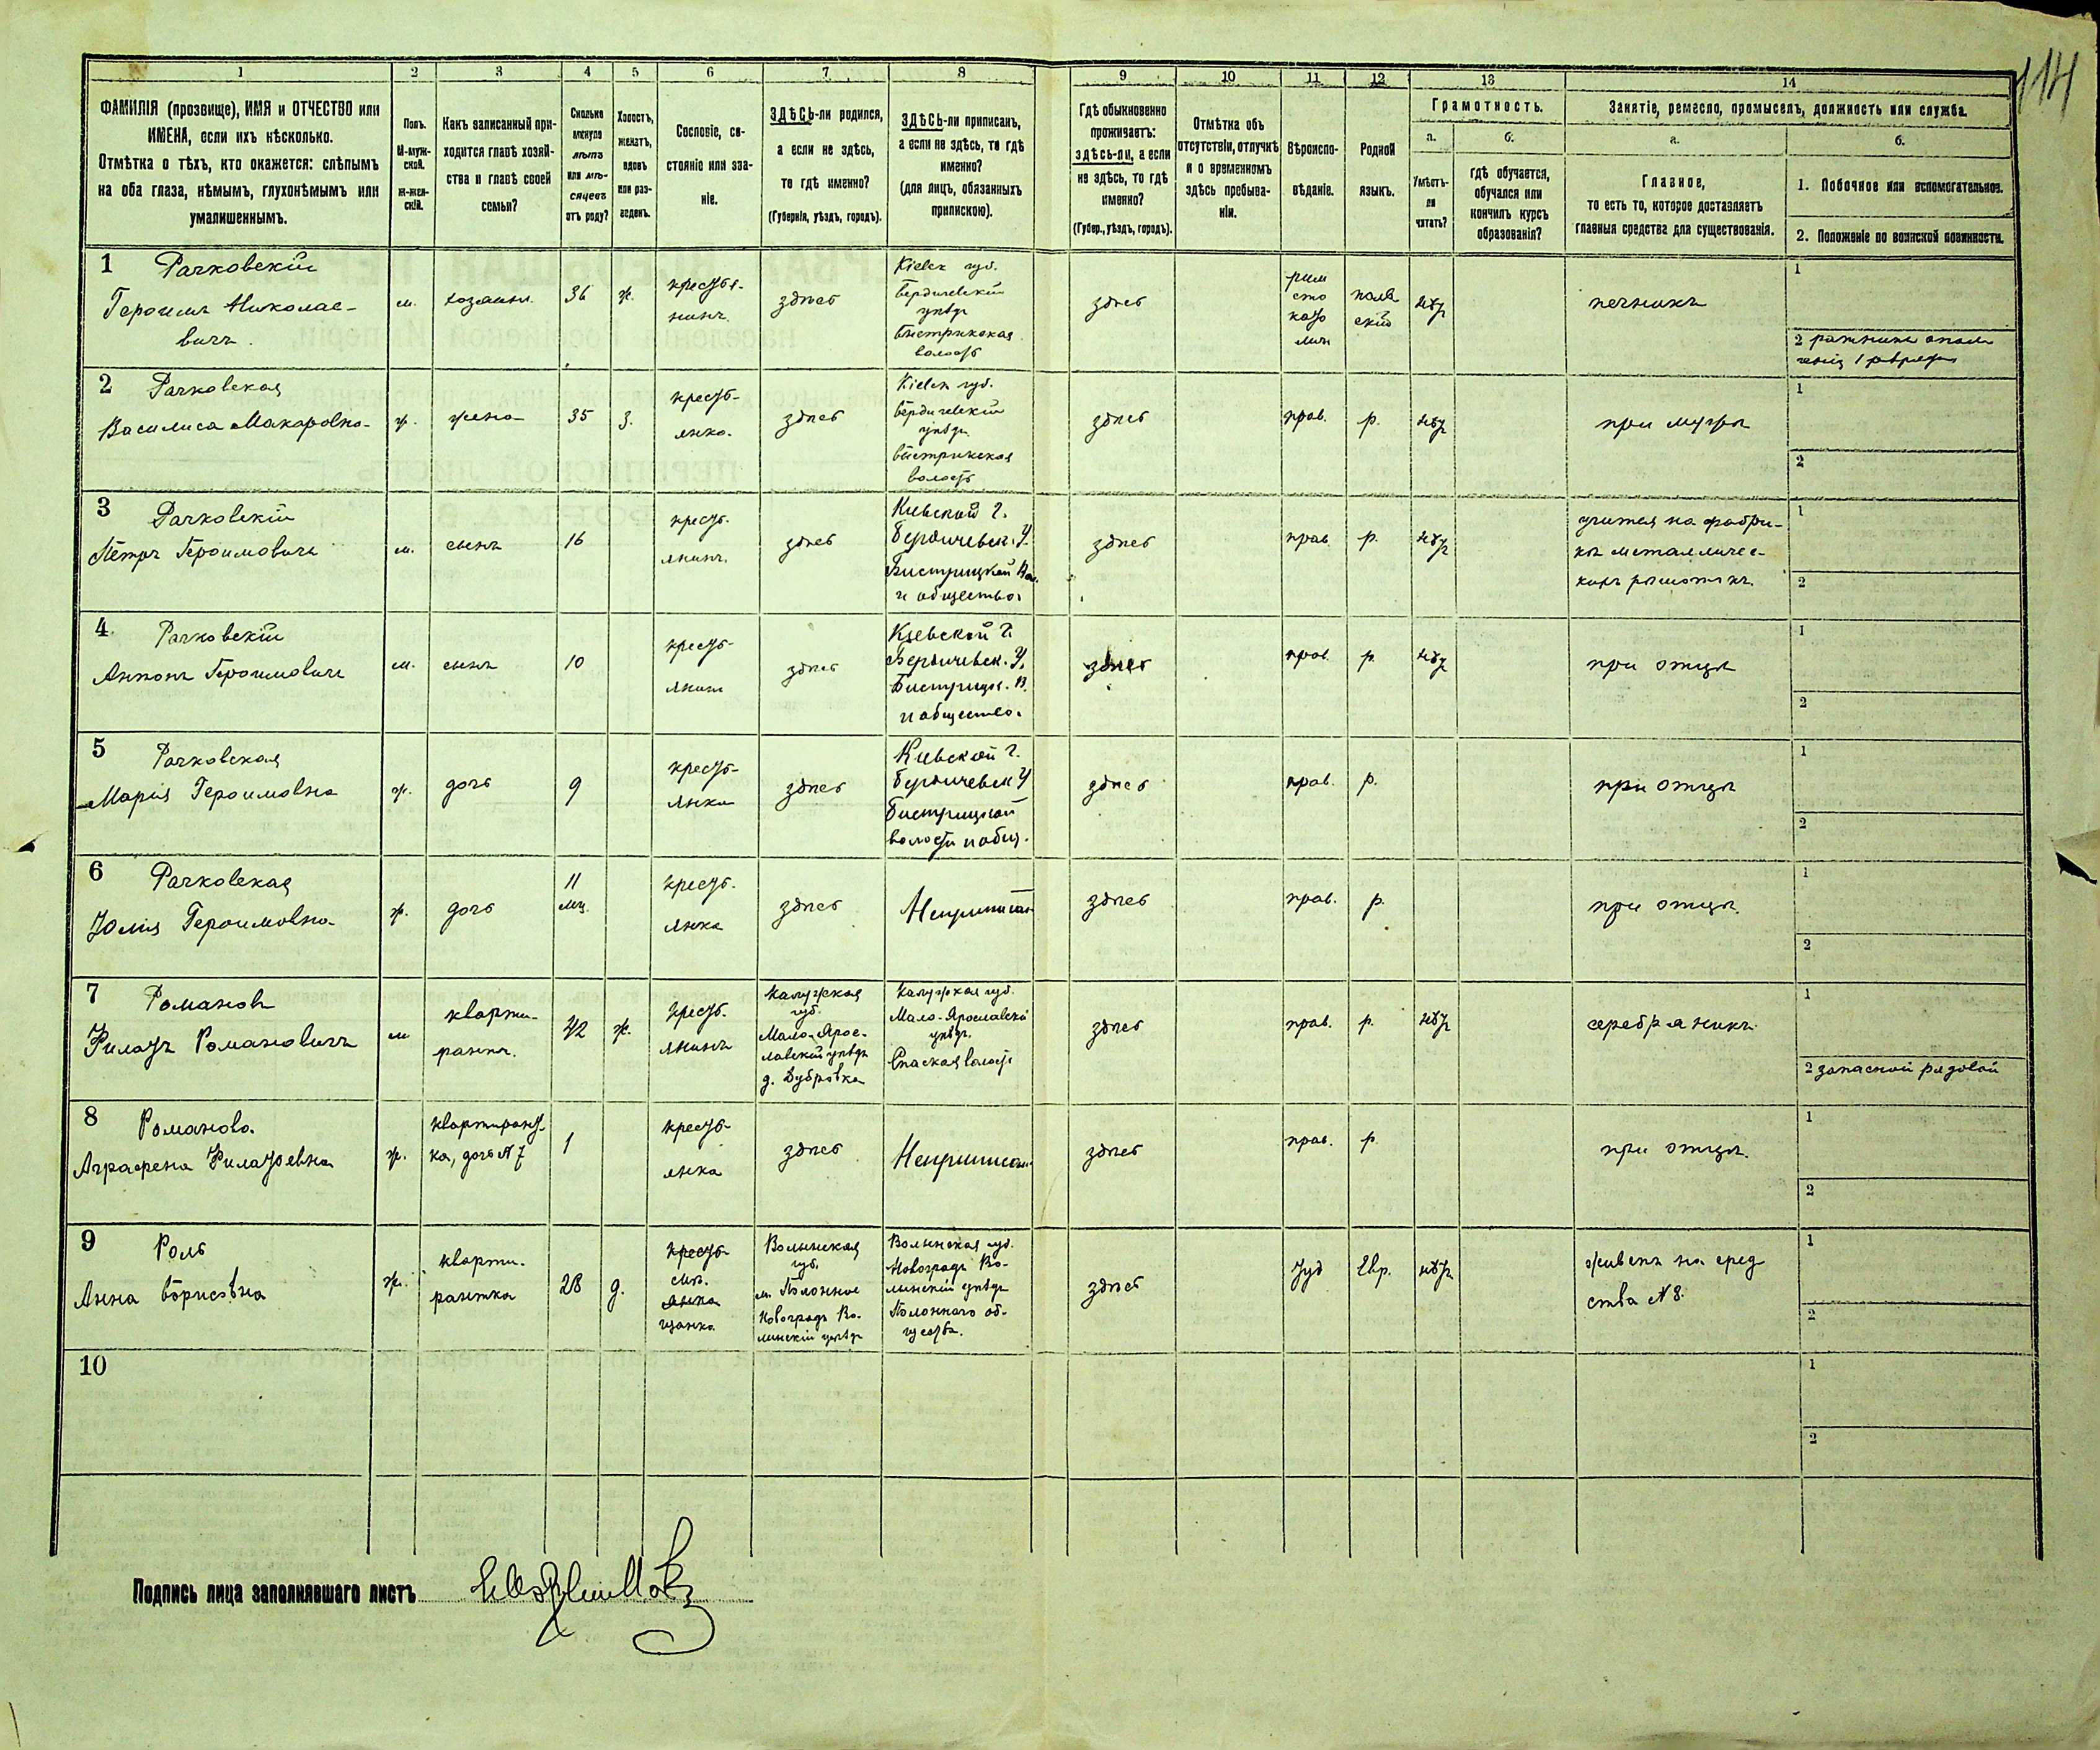 114
1 2 3 4 5 6 7 8 9 10 11 12 13 14
ФАМИЛІЯ (прозвище), ИМЯ и ОТЧЕСТВО или
ИМЕНА, если ихъ нѣсколько.
Отмѣтка о тѣхъ, кто окажется: слѣпымъ
на оба глаза, нѣмымъ, глухонѣмымъ или
умалишеннымъ.
Полъ.
М-муж-
ской.
Ж-жен-
скій.
Какъ записанный при-
ходится главѣ хозяй-
ства и главѣ своей
семьи?
Сколько
минуло
лѣтъ
или мѣ-
сяцевъ
отъ роду?
Холостъ,
женатъ,
вдовъ
или раз-
веденъ.
Сословіе, со-
стояніе или зва-
ніе.
ЗДѢСЬ-ли родился,
а если не здѣсь,
то гдѣ именно?
(Губернія, уѣздъ, городъ).
ЗДѢСЬ-ли приписанъ,
а если не здѣсь, то гдѣ
именно?
(для лицъ, обязанныхъ
припискою).
Гдѣ обыкновенно
проживаетъ:
здѣсь-ли, а если
не здѣсь, то гдѣ
именно?
(Губер., уѣздъ, городъ).
Отмѣтка объ
отсутствіи, отлучкѣ
и о временномъ
здѣсь пребыва-
ніи.
Вѣроиспо-
вѣданіе.
Родной
языкъ.
Грамотность.
а.
Умѣетъ-
ли
читать?
б.
гдѣ обучается,
обучался или
кончилъ курсъ
образованія?
Занятіе, ремесло, промыселъ, должность или служба.
а.
Главное,
то есть то, которое доставляетъ
главныя средства для существованія.
б.
1. Побочное или вспомогательное.
2. Положеніе по воинской повинности.
1 Рачковскій
Героимъ Николае-
вичъ.
м.
хозяинъ
36
ж.
крестья-
нинъ
здѣсь
Кіевск губ.
Бердичевскій
уѣздъ
Быстрикская
волость
здѣсь
рим
ско
като
лич
поль
скій
нѣтъ
печникъ
1
2 ратникъ опол
ченія 1 разряда
2 Рачковская
Василиса Макаровна
ж.
жена
35
з.
кресть-
янка.
здѣсь
Кіевск губ.
Бердичевскій
уѣздъ
Быстрикская
волость
здѣсь
прав.
р.
нѣтъ
при мужѣ
1
2
3 Рачковскій
Петръ Героимовичъ
м.
сынъ
16
кресть-
янинъ.
здѣсь
Кіевской г.
Бердичевск. у.
Быстрицкой Вол.
и общество.
здѣсь
прав.
р.
нѣтъ
учится на фабри-
кѣ металличес-
кихъ рѣшотокъ.
1
2
4 Рачковскій
Антонъ Героимовичъ
м.
сынъ
10
кресть-
янин
здѣсь
Кіевской г.
Бердичевск. у.
Быстрицк. В.
и общество.
здѣсь
прав.
р.
нѣтъ
при отцѣ
1
2
5 Рачковская
Марія Героимовна
ж.
дочь
9
кресть-
янка
здѣсь
Кіевской г.
Бердичевск у
Быстрицкой
волости и общ.
здѣсь
прав.
р.
при отцѣ
1
2
6 Рачковская
Юлія Героимовна
ж.
дочь
11
мц.
кресть-
янка
здѣсь
Неприписан
здѣсь
прав.
р.
при отцѣ.
1
2
7 Романовъ
Филатъ Романовичъ
м
кварти-
рантъ.
42
ж.
кресть-
янинъ
Калужская
губ.
Мало-Ярос-
лавскій уѣздъ
д. Дубровка
Калужская губ.
Мало-Ярославскій
уѣздъ.
Спаская волость
здѣсь
прав.
р.
нѣтъ
серебряникъ
1
2 запасной рядовой
8 Романова
Аграфена Филатьевна
ж.
квартирант-
ка, дочь № 7
1
кресть-
янка
здѣсь
Неприписан
здѣсь
прав.
р.
при отцѣ.
1
2
9 Роль
Анна Борисовна
ж.
кварти-
рантка
28
д.
кресть-
мѣ-
янка
щанка
Волынская
губ.
м. Полонное
Новоградъ Во-
лынскій уѣздъ
Волынская губ.
Новоградъ Во-
лынскій уѣздъ
Полоннаго об-
щества.
здѣсь
Іуд
Евр.
нѣтъ
живетъ на сред
ства № 8.
1
2
10
1
2
Подпись лица заполнявшаго листъ